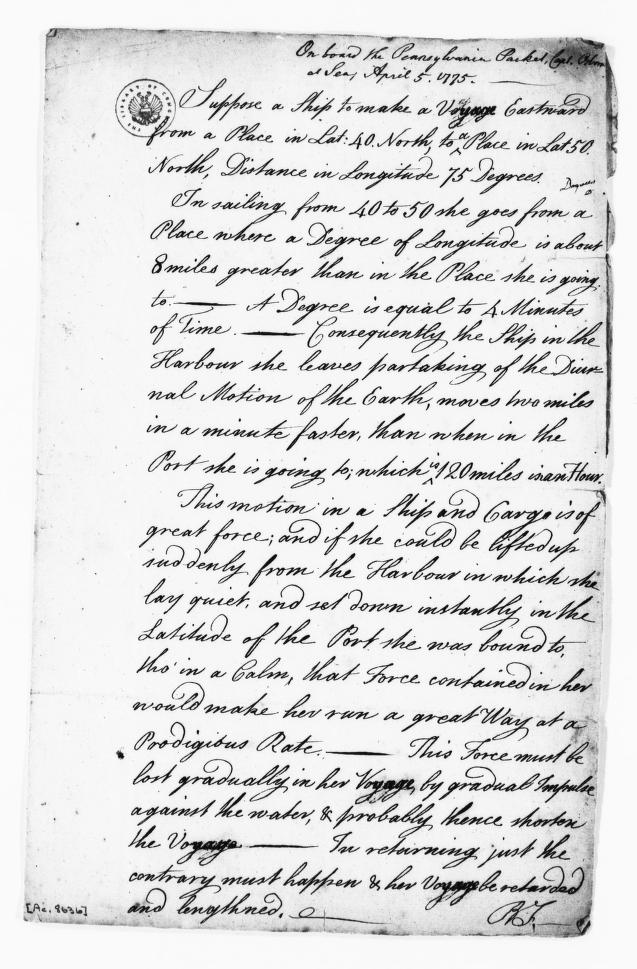 On board the Pennsylvania Packet, Capt. Osborn
at Sea, April 5. 1775.
Suppose a Ship to make a Voyage Eastward
from a Place in Lat: 40. North, to a Place in Lat 50.
North, Distance in Longitude 75 Degrees.
Degrees
In sailing from 40 to 50 she goes from a
Place where a Degree of Longitude is about
8 miles greater than in the Place she is going
to. — A Degree is equal to 4 Minutes
of Time. — Consequently the Ship in the
Harbour she leaves partaking of the Diur-
nal Motion of the Earth, moves two miles
in a minute faster, than when in the
Port she is going to; which is 120 miles in an Hour.
This motion in a Ship and Cargo is of
great force; and if she could be lifted up
suddenly from the Harbour in which she
lay quiet, and set down instantly in the
Latitude of the Port she was bound to,
tho' in a Calm, that Force contained in her
would make her run a great Way at a
Prodigious Rate. — This Force must be
lost gradually in her Voyage, by gradual Impulse
against the water, & probably thence shorten
the Voyage — In returning just the
contrary must happen & her Voyage be retarded
and lengthned.
B.F.
[Ac. 8636]
THE LIBRARY OF CONGRESS